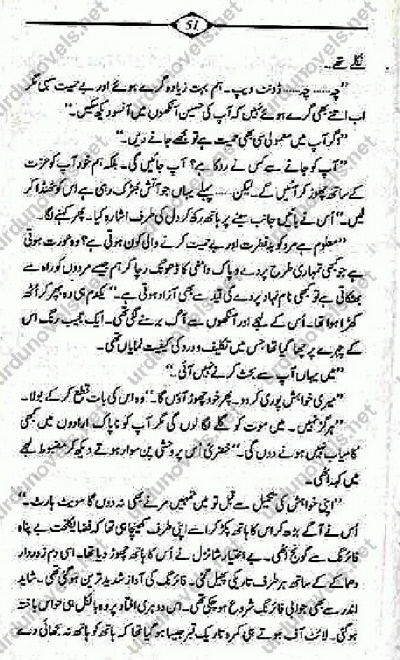 51
نکلے تھے۔
"چہ...... چہ...... ڈونٹ ویپ۔ ہم بہت زیادہ گرے ہوئے اور بے حمیت سہی مگر
اب اتنے بھی گرے ہوئے نہیں کہ آپ کی حسین آنکھوں میں آنسو دیکھ سکیں۔"
"اگر آپ میں معمولی سی بھی حمیت ہے تو مجھے جانے دیں۔"
"آپ کو جانے سے کس نے روکا ہے؟ آپ جائیں گی۔ بلکہ ہم خود آپ کو عزت
کے ساتھ چھوڑ کر آئیں گے۔ لیکن..... پہلے یہاں جو آتش بھڑک رہی ہے اس کو ٹھنڈا کر
لیں۔" اُس نے بائیں جانب سینے پر ہاتھ رکھ کر دل کی طرف اشارہ کیا۔ پھر کہنے لگا۔
"معلوم ہے مرد کو بدفطرت اور بے حمیت کرنے والی کون ہوتی ہے؟ وہ عورت ہوتی
ہے جو کبھی تمہاری طرح پردے و پاک دامنی کا ڈھونگ رچا کر ہم جیسے مردوں کو راہ سے
بھٹکاتی ہے تو کبھی نام نہاد پردے کی قید سے بھی آزاد ہوتی ہے۔" یکدم ہی وہ بپھر کر اُٹھ
کھڑا ہوا تھا۔ اُس کے لہجے اور آنکھوں سے آگ برسنے لگی تھی۔ ایک عجیب رنگ اس
کے چہرے پر چھا گیا تھا جس میں تکلیف و درد کی کیفیت نمایاں تھی۔
"میں یہاں آپ سے بحث کرنے نہیں آئی۔"
"میری خواہش پوری کر دو۔ پھر خود چھوڑ آؤں گا۔" وہ اس کی بات قطع کر کے بولا۔
"ہرگز نہیں۔ میں موت کو گلے لگا لوں گی مگر آپ کو ناپاک ارادوں میں کبھی
کامیاب نہیں ہونے دوں گی۔" خضریٰ اُس پر وحشی پن سوار ہوتے دیکھ کر مضبوط لہجے
میں کہہ اٹھی۔
"اپنی خواہش کی تکمیل سے قبل تو میں تمہیں مرنے بھی نہ دوں گا سویٹ ہارٹ۔"
اُس نے آگے بڑھ کر اس کا ہاتھ پکڑ کر اسے اپنی طرف کھینچا ہی تھا کہ فضا یکلخت بے پناہ
فائرنگ سے گونج اٹھی۔ بے اختیار شانزل نے اُس کا ہاتھ چھوڑ دیا تھا۔ اسی دم زوردار
دھماکے کے ساتھ ہر طرف تاریکی پھیل گئی۔ فائرنگ کی آواز شدید ترین ہو گئی تھی۔ شاید
اندر سے بھی جوابی فائرنگ شروع ہو چکی تھی۔ اس دوہری افتاد پر وہ بالکل ہی حواس باختہ
ہو گئی۔ لائٹ آف ہوتے ہی کمرہ تاریک قبر جیسا ہو گیا تھا کہ ہاتھ کو ہاتھ نہ سجھائی دے
urdunovels.net